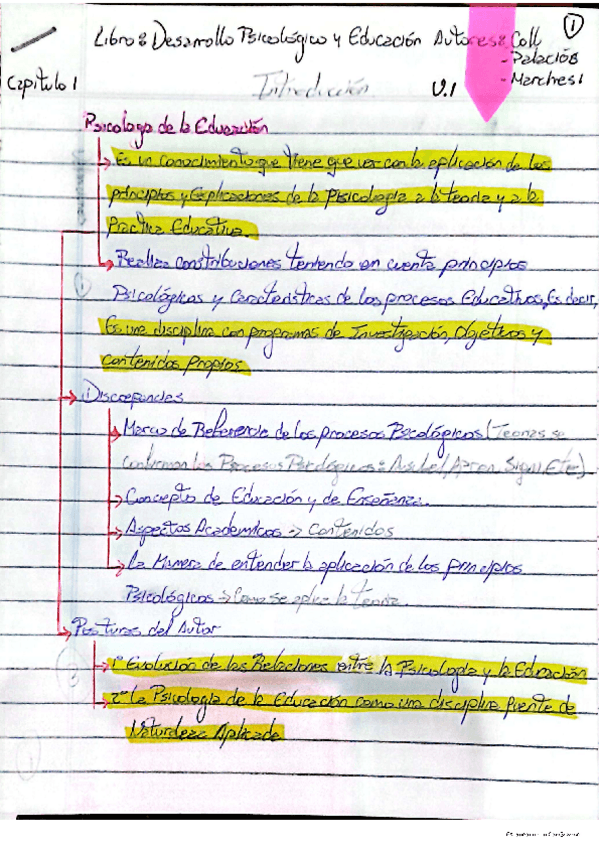 Libro: Desarrollo Psicológico y Educación Autores: Coll
- Palacios
- Marchesi
①
Capitulo 1
Introducción V.1
Psicologa de la Educación
Es un conocimiento que tiene que ver con la aplicación de los
principios y Explicaciones de la Psicologia a la teoria y a la
Practica Educativa.
Realiza constribuciones teniendo en cuenta principios
Psicológicos y Caracteristicas de los procesos Educativos, Es decir,
Es una disciplina con programas de Investigación, Objetivos y
contenidos Propios
Discrepancias
Marco de Referencia de los procesos Psicológicos (Teorias se
conforman los Procesos Psicológicos: Ausbel, Apren. Signi. Etc)
Concepto de Educación y de Enseñanza.
Aspectos Academicos → Contenidos
La Manera de entender la aplicación de los principios
Psicológicos → Como se aplica la teoria.
Posturas del Autor
1° Evolución de las Relaciones entre la Psicologia y la Educación
2° La Psicologia de la Educación como una disciplina puente de
Naturaleza Aplicada